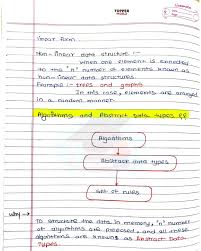 TOPPER
WORLD
linear form.
Non-linear data structure :-
when one element is connected
to the "n" number of elements known as
non-linear data structures.
Example :- trees and graphs
In this case, elements are arranged
in a random manner.
Algorithms and Abstract Data Types
Algorithms
Abstract data types
Set of rules
why →
To structure the data in memory, "n"
of algorithms are proposed, and all these
algorithms are known as Abstract Data
Types.